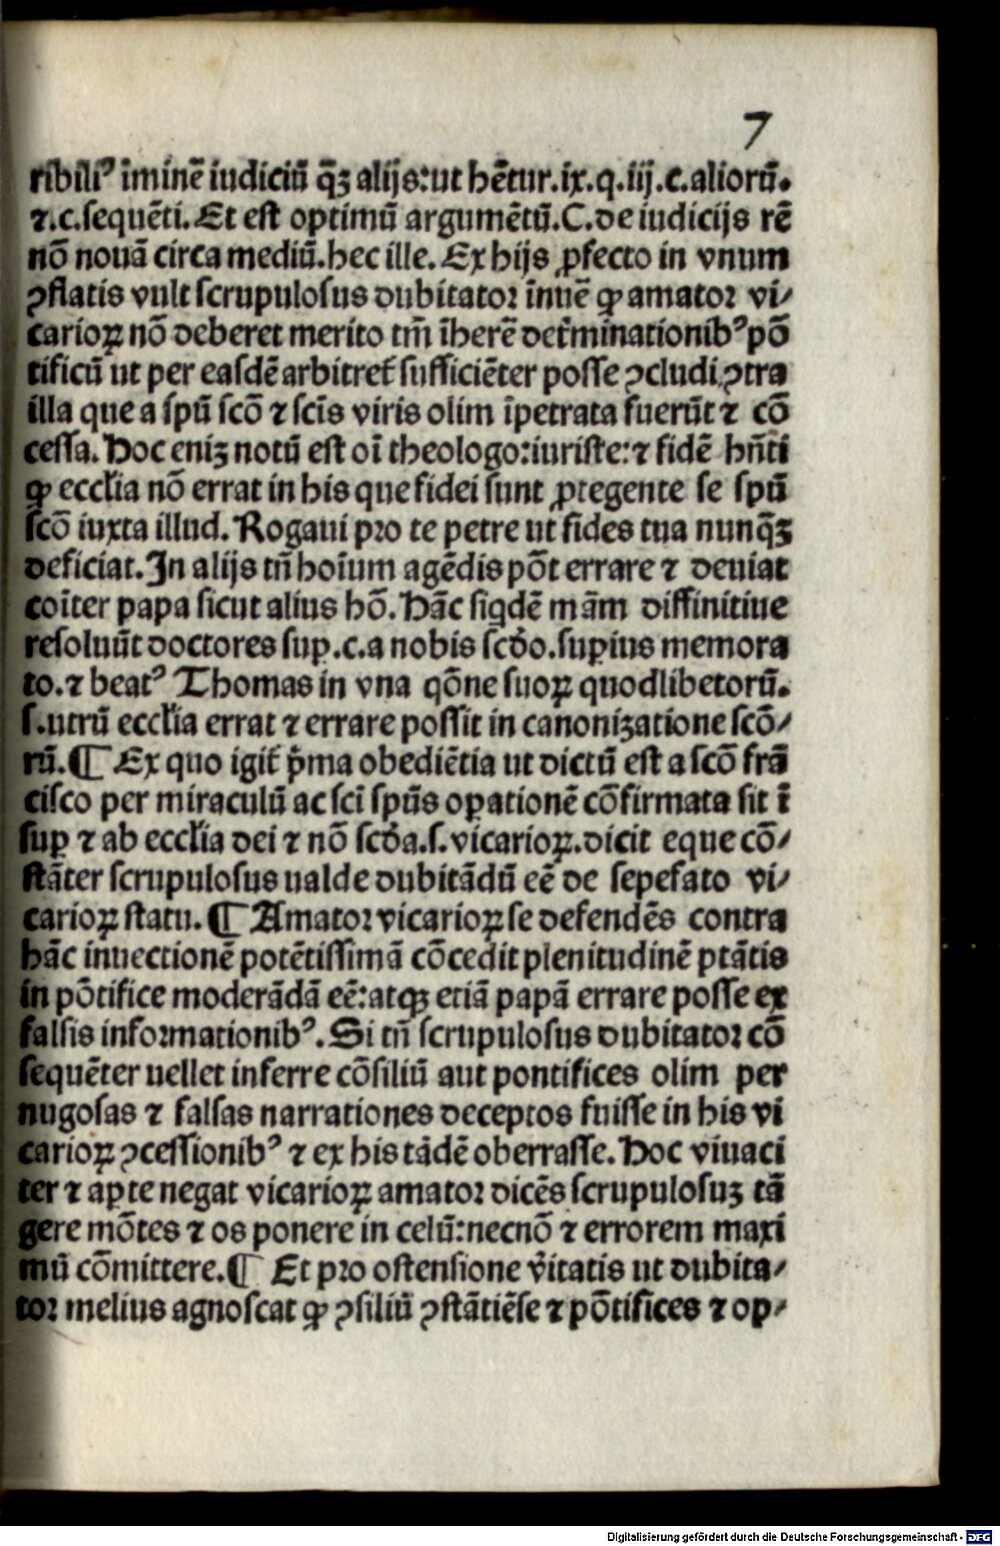 7
ribiliꝰ īminē iudiciū qꝫ alijs:ut hētur.ix.q.iij.c.aliorū.
⁊.c.sequēti.Et est optimū argumētū.C.de iudicijs rē
nō nouā circa mediū.hec ille. Ex hijs ꝓfecto in vnum
ꝯflatis vult scrupulosus dubitator īnuē ꝙ amator vi/
carioꝝ nō deberet merito tm̄ īherē det̄minationibꝰ pō
tificū ut per easdē arbitret̄ sufficiēter posse ꝯcludi ꝯtra
illa que a spū scō ⁊ scīs viris olim īpetrata fuerūt ⁊ cō
cessa. Hoc eniꝫ notū est oī theologo:iuriste:⁊ fidē hn̄ti
ꝙ eccłia nō errat in his que fidei sunt ꝓtegente se spū
scō iuxta illud. Rogaui pro te petre ut fides tua nunqꝫ
deficiat.In alijs tn̄ hoīum agēdis pōt errare ⁊ deuiat
coīter papa sicut alius hō. Hāc siqdē mām diffinitiue
resoluūt doctores suꝑ.c.a nobis scd̄o.suꝑius memora
to.⁊ beatꝰ Thomas in vna qōne suoꝝ quodlibetorū.
s.utrū eccłia errat ⁊ errare possit in canonizatione scō/
rū.¶ Ex quo igit̄ pͥma obediētia ut dictū est a scō frā
cisco per miraculū ac scī spūs oꝑationē cōfirmata sit ī
suꝑ ⁊ ab eccłia dei ⁊ nō scd̄a.s.vicarioꝝ.dicit eque cō/
stāter scrupulosus ualde dubitādū eē de sepefato vi/
carioꝝ statu.¶ Amator vicarioꝝ se defendēs contra
hāc inuectionē potētissimā cōcedit plenitudinē ptātis
in pōtifice moderādā eē:atqꝫ etiā papā errare posse ex
falsis informationibꝰ. Si tn̄ scrupulosus dubitator cō
sequēter uellet inferre cōsiliū aut pontifices olim per
nugosas ⁊ falsas narrationes deceptos fuisse in his vi
carioꝝ ꝯcessionibꝰ ⁊ ex his tādē oberrasse. Hoc viuaci
ter ⁊ aꝑte negat vicarioꝝ amator dicēs scrupulosuꝫ tā
gere mōtes ⁊ os ponere in celū:necnō ⁊ errorem maxi
mū cōmittere.¶ Et pro ostensione v̄itatis ut dubita/
tor melius agnoscat ꝙ ꝯsiliū ꝯstātiēse ⁊ pōtifices ⁊ op/
Digitalisierung gefördert durch die Deutsche Forschungsgemeinschaft - DFG